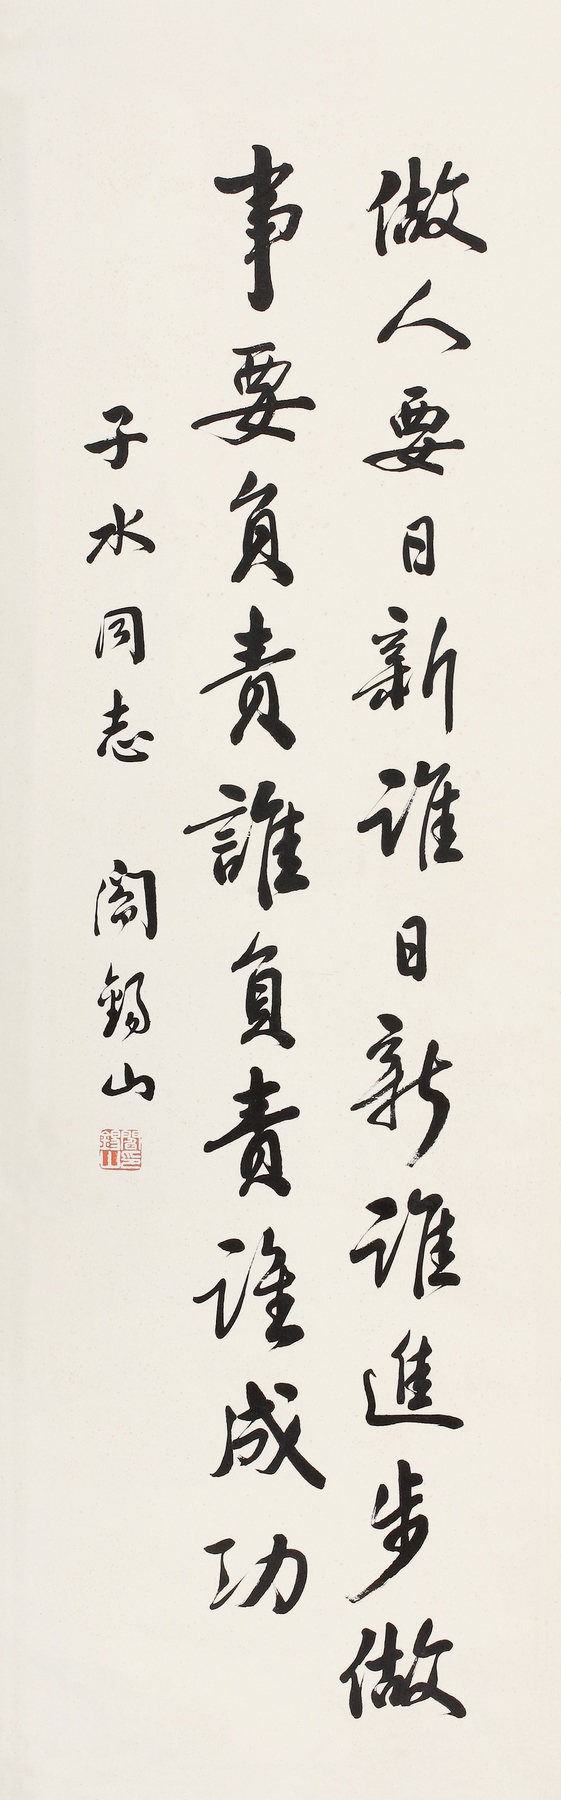 做人要日新誰日新誰進步做
事要負責誰負責誰成功
子水同志 閻錫山
閻錫山印